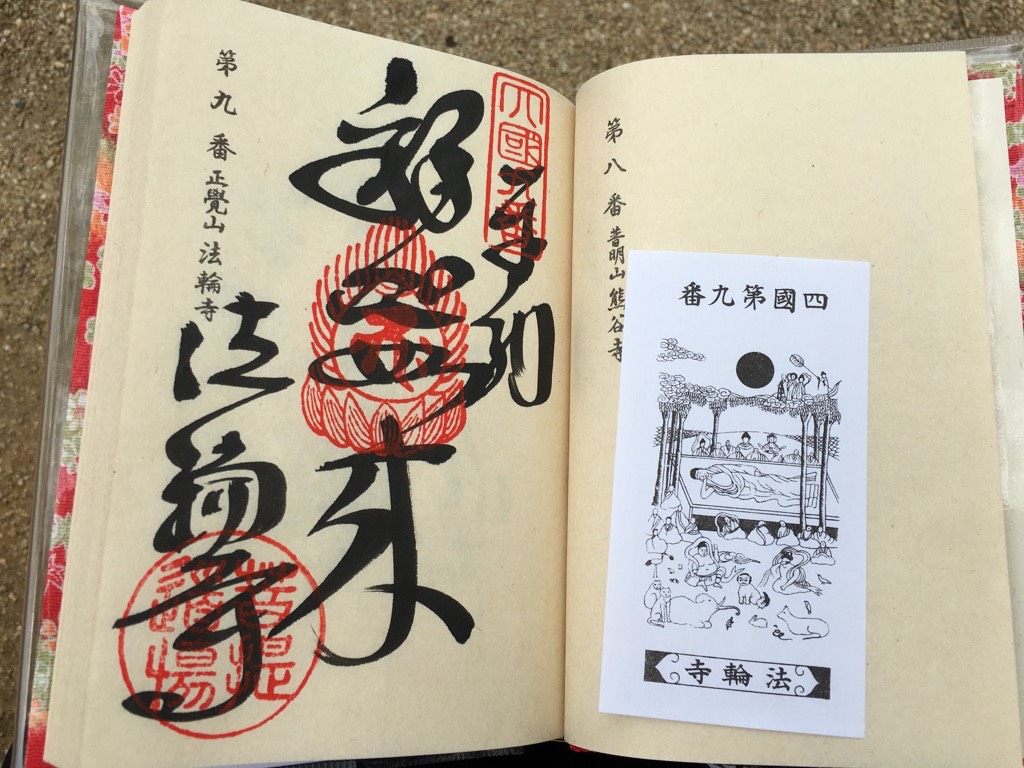 第八番 普明山 熊谷寺
四國第九番
法輪寺
四國九番
奉納
法輪寺
菩提道場
第九番 正覺山 法輪寺